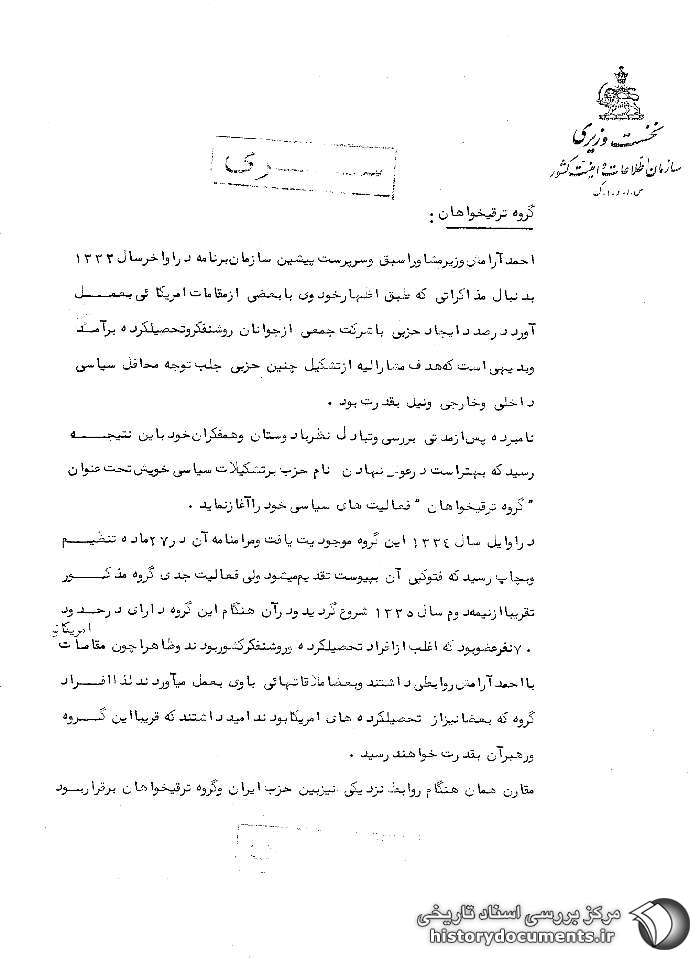 نخست وزیری
سازمان اطلاعات و امنیت کشور
س.ا.و.ا.ک
سری
گروه ترقیخواهان :
احمد آرامش وزیر مشاور اسبق و سرپرست پیشین سازمان برنامه در اواخر سال ۱۳۳۳
بدنبال مذاکراتی که طبق اظهار خود وی با بعضی از مقامات امریکائی بعمل
آورد در صدد ایجاد حزبی با شرکت جمعی از جوانان روشنفکر و تحصیلکرده برآمد
وبدیهی است که هدف مشارالیه از تشکیل چنین حزبی جلب توجه محافل سیاسی
داخلی وخارجی ونیل بقدرت بود .
نامبرده پس از مدتی بررسی وتبادل نظر با دوستان وهمفکران خود باین نتیجه
رسید که بهتر است در عوض نهادن نام حزب بر تشکیلات سیاسی خویش تحت عنوان
"گروه ترقیخواهان" فعالیت های سیاسی خود را آغاز نماید .
در اوایل سال ۱۳۳٤ این گروه موجودیت یافت ومرامنامه آن در ۲۷ ماده تنظیم
وبچاپ رسید که فتوکپی آن بپیوست تقدیم میشود ولی فعالیت جدی گروه مذکور
تقریبا از نیمه دوم سال ۱۳۳۵ شروع گردید ودر آن هنگام این گروه دارای در حدود
۷۰ نفر عضو بود که اغلب از افراد تحصیلکرده وروشنفکر کشور بودند وظاهرا چون مقامات امریکائی
با احمد آرامش روابطی داشتند وبعضا ملاقاتهائی با وی بعمل میآوردند لذا افراد
گروه که بعضا نیز از تحصیلکرده های امریکا بودند امید داشتند که قریبا این گروه
ورهبر آن بقدرت خواهند رسید .
مقارن همان هنگام روابط نزدیکی نیز بین حزب ایران وگروه ترقیخواهان برقرار بود
مرکز بررسی اسناد تاریخی
historydocuments.ir